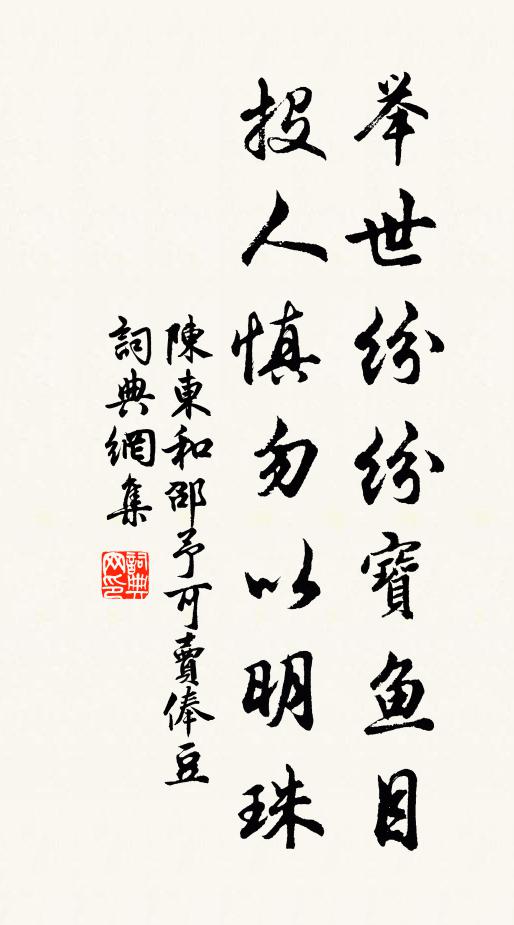 举世纷纷寶鱼目
投人慎勿以明珠
陳東和邵予可賣俸豆
詞典網集
詞典网印